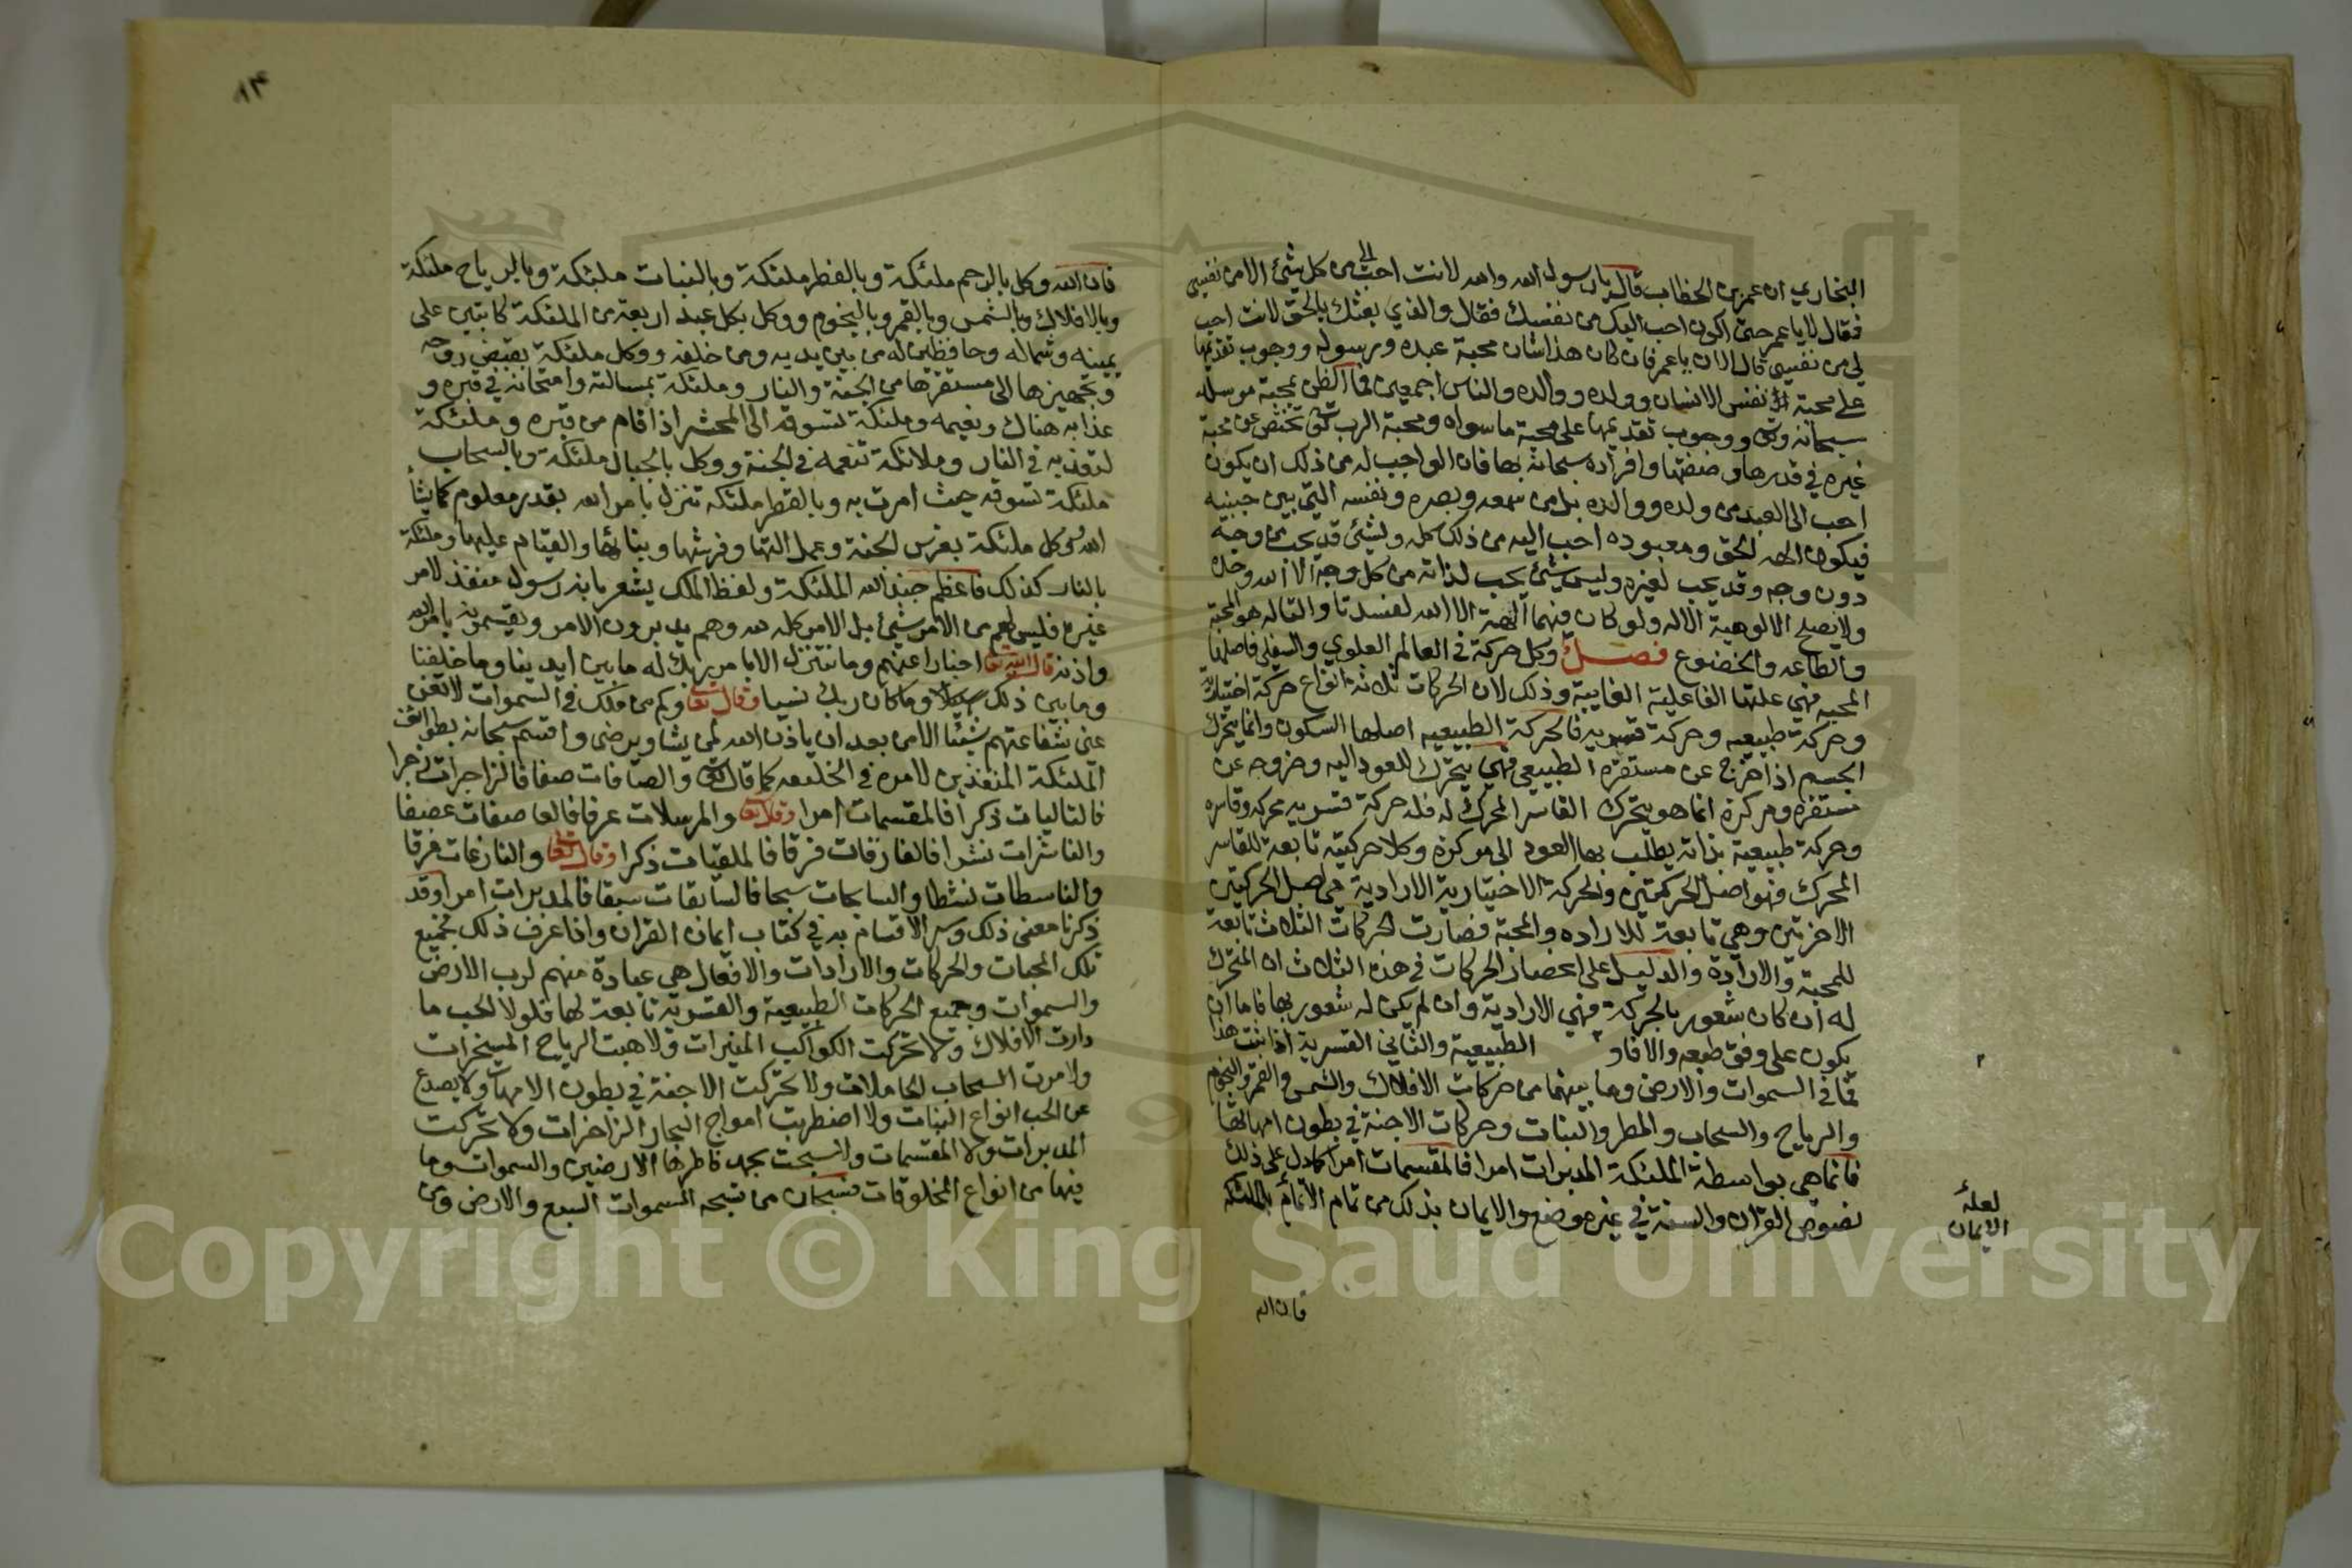 البخاري ان عمر بن الخطاب قال يا رسول الله والله لانت احب الي من كل شيئ الا من نفسي
فقال لا يا عمر حتى اكون احب اليك من نفسك فقال والذي بعثك بالحق لانت احب
لي من نفسي قال الان يا عمر فان كان هذا شان محبة عبده ورسوله ووجوب تقديمها
على محبة نفس الانسان وولده ووالده والناس اجمعين فما الظن بمحبة مرسله
سبحانه وتعالى ووجوب تقديمها على محبة ما سواه ومحبة الرب تعالى تختص عن محبة
غيره في قدرها وصفتها وافراده سبحانه بها فان الواجب له من ذلك ان يكون
احب الى العبد من ولده ووالده بل من سمعه وبصره ونفسه التي بين جبنيه
فيكون الهه الحق ومعبوده احب اليه من ذلك كله والشئ قد يحب من وجه
دون وجه وقد يحب لغيره وليس شيئ يحب لذاته من كل وجه الا الله وحده
ولا يصلح الالوهية الا له ولو كان فيهما الهة الا الله لفسدتا والتاله هو المحبة
والطاعه والخضوع فصل وكل حركة في العالم العلوي والسفلي فاصلها
المحبه فهي علتها الفاعلية الغايية وذلك لان الحركات ثلاثة انواع حركة اختيارية
وحركة طبيعيه وحركة قسريه فالحركة الطبيعيه اصلها السكون وانما يتحرك
الجسم اذا خرج عن مستقره الطبيعي فهي يتحرك للعود اليه وخروجه عن
مستقره ومركزه انما هو يتحرك القاسر المحرك له فله حركة قسريه محركه وقاسره
وحركة طبيعية بذاته يطلب بها العود الى مركزه وكلا حركتيه تابعة للقاسر
المحرك فهو اصل الحركتين والحركة الاختيارية الارادية هي اصل الحركتين
الاخرتين وهي تابعة للاراده والمحبة فصارت الحركات الثلاث تابعة
للمحبة والارادة والدليل على انحصار الحركات في هذه الثلاث ان المتحرك
له ان كان شعور بالحركة فهي الارادية وان لم يكن له شعور بها فاما ان
يكون على وفق طبعه والافاو الطبيعية والثاني القسرية اذا ثبت هذا
فما في السموات والارض وما بينهما من حركات الافلاك والشمس والقمر والنجوم
والرياح والسحاب والمطر والنبات وحركات الاجنة في بطون امهاتها
فانما هي بواسطة الملئكة المدبرات امرا فالمقسمات امرا كما دل على ذلك
نصوص القران والسنة في غير موضع والايمان بذلك من تمام الايمان بالملئكة
لعله
الايمان
فان الله
١٣
فان الله وكل بالرحم ملئكة وبالقطر ملئكة وبالنبات ملئكة وبالرياح ملئكة
وبالافلاك وبالشمس وبالقمر وبالنجوم ووكل بكل عبد اربعة من الملئكة كاتبين على
يمينه وشماله وحافظين له من بين يديه ومن خلفه ووكل ملئكة بقبض روحه
وتجهيزها الى مستقرها من الجنة والنار وملئكة بمسالته وامتحانه في قبره و
عذابه هناك ونعيمه وملئكة تسوقه الى المحشر اذا قام من قبره وملئكة
لتعذيبه في النار وملائكة تنعمه في الجنة ووكل بالجبال ملئكة وبالسحاب
ملئكة تسوقه حيث امرت به وبالقطر ملئكة تنزل بامر الله بقدر معلوم كما يشأ
الله ووكل ملئكة بغرس الجنة وعمل التها وفرشها وبنائها والقيام عليها وملئكة
بالنار كذلك فاعظم جند الله الملئكة ولفظ الملك يشعر بانه رسول منفذ لامر
غيره فليس لهم من الامر شيئ بل الامر كله لله وهم يدبرون الامر ويقسمونه بامر الله
واذنه قال الله تعا اخبارا عنهم وما نتنزل الا بامر ربك له ما بين ايدينا وما خلفنا
وما بين ذلك وما كان ربك نسيا وقال تعا وكم من ملك في السموات لا تغني
عني شفاعتهم شيئا الا من بعد ان ياذن الله لمن يشا ويرضى واقسم سبحانه بطوائف
الملئكة المنفذين لامره في الخليقه كما قال تعا والصافات صفا فالزاجرات زجرا
فالتاليات ذكرا فالمقسمات امرا وقال تعا والمرسلات عرفا فالعاصفات عصفا
والناشرات نشرا فالفارقات فرقا فالملقيات ذكرا وقال تعا والنازعات غرقا
والناسطات نشطا والسابحات سبحا فالسابقات سبقا فالمدبرات امرا وقد
ذكرنا معنى ذلك وسر الاقسام به في كتاب ايمان القران واذا عرف ذلك فجميع
تلك المحبات والحركات والارادات والافعال هي عبادة منهم لرب الارض
والسموات وجميع الحركات الطبيعية والقسرية تابعة لها فلولا الحب ما
دارت الافلاك ولا تحركت الكواكب المنيرات ولا هبت الرياح المسخرات
ولا مرت السحاب الحاملات ولا تحركت الاجنة في بطون الامهات ولا يصدع
عن الحب انواع النبات ولا اضطربت امواج البحار الزاخرات ولا تحركت
المدبرات ولا المقسمات ولا سبحت بحمد فاطرها الارضين والسموات وما
فيها من انواع المخلوقات فسبحان من تسبحه السموات السبع والارض ومن